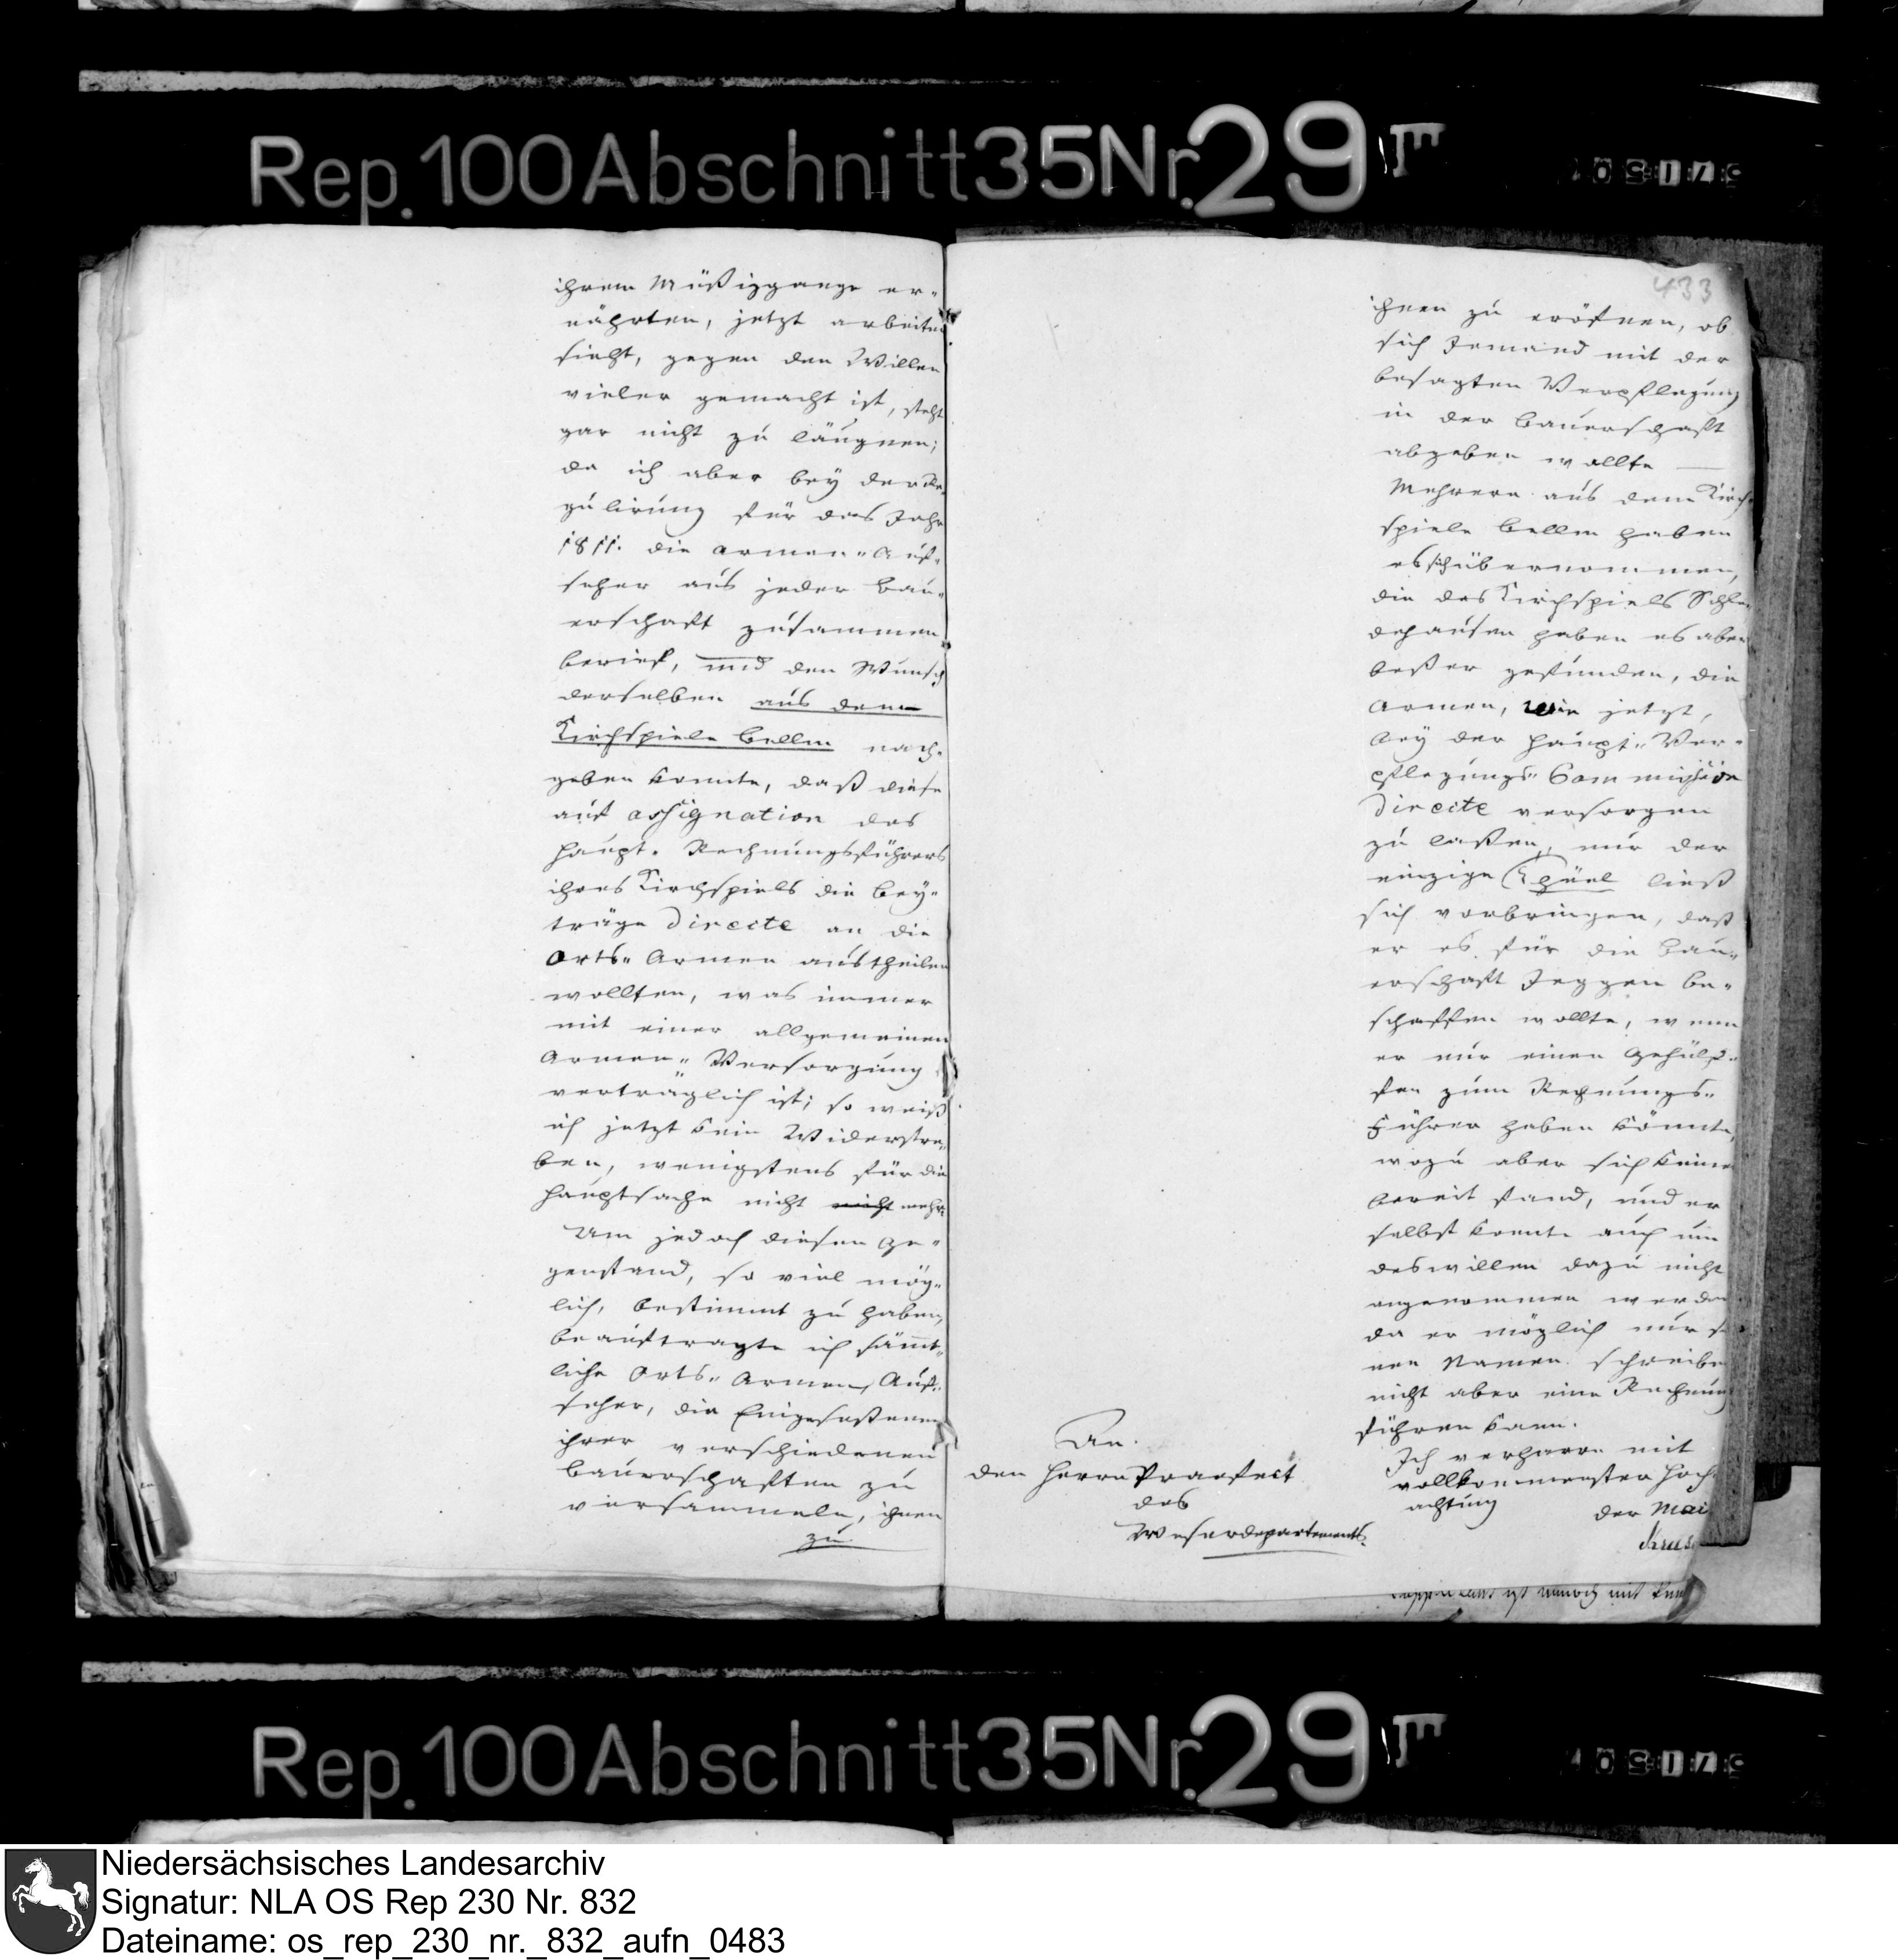 Rep. 100 Abschnitt 35 Nr. 29
ihrem Müßiggange er-
nährten, jetzt arbeiten
sieht, gegen den Willen
vieler gemacht ist, steht
gar nicht zu läugnen;
da ich aber bey der Re-
gulirung für das Jahr
1811. die Armen-Auf-
seher aus jeder Bau-
erschaft zusammen
berief, und den Wunsch
derselben aus dem
Kirchspiele Bellm nach-
geben konnte, daß diese
auf assignation des
Haupt-Rechnungsführers
ihres Kirchspiels die Bey-
träge directe an die
Orts-Armen austheilen
wollten, was immer
mit einer allgemeinen
Armen-Versorgung
verträglich ist; so weiß
ich jetzt kein Widerstre-
ben, wenigstens für die
Hauptsache nicht nicht mehr.
Um jedoch diesen Ge-
genstand, so viel mög-
lich, bestimmt zu haben,
beauftragte ich sämt-
liche Orts-Armen-Auf-
seher, die Eingeseßenen
ihrer verschiedenen
Bauerschaften zu
versammeln, ihnen
zu
433
ihnen zu eröfnen, ob
sich Jemand mit der
besagten Verpflegung
in der Bauerschaft
abgeben wollte —
Mehrere aus dem Kirch-
spiele Bellm haben
es sich übernommen,
die des Kirchspiels Schle-
dehausen haben es aber
beßer gefunden, die
Armen, wie jetzt,
bey der Haupt-Ver-
pflegungs-Commission
directe versorgen
zu laßen, nur der
einzige ließ
sich vorbringen, daß
er es für die Bau-
erschaft Jeggen be-
schaffen wollte, wenn
er nur einen Gehülf-
fen zum Rechnungs-
Führer haben könnte,
wozu aber sich keiner
bereit fand, und er
selbst konnte auch um
deswillen dazu nicht
angenommen werden
da er möglich nur s
nen Namen schreiben
nicht aber eine Rechnung
führen kann.
Ich verharre mit
vollkommenster Hoch-
achtung
der Mai
An
den Herrn Praefect
des
Weserdepartements.
Rep. 100 Abschnitt 35 Nr. 29
Niedersächsisches Landesarchiv
Signatur: NLA OS Rep 230 Nr. 832
Dateiname: os_rep_230_nr._832_aufn_0483